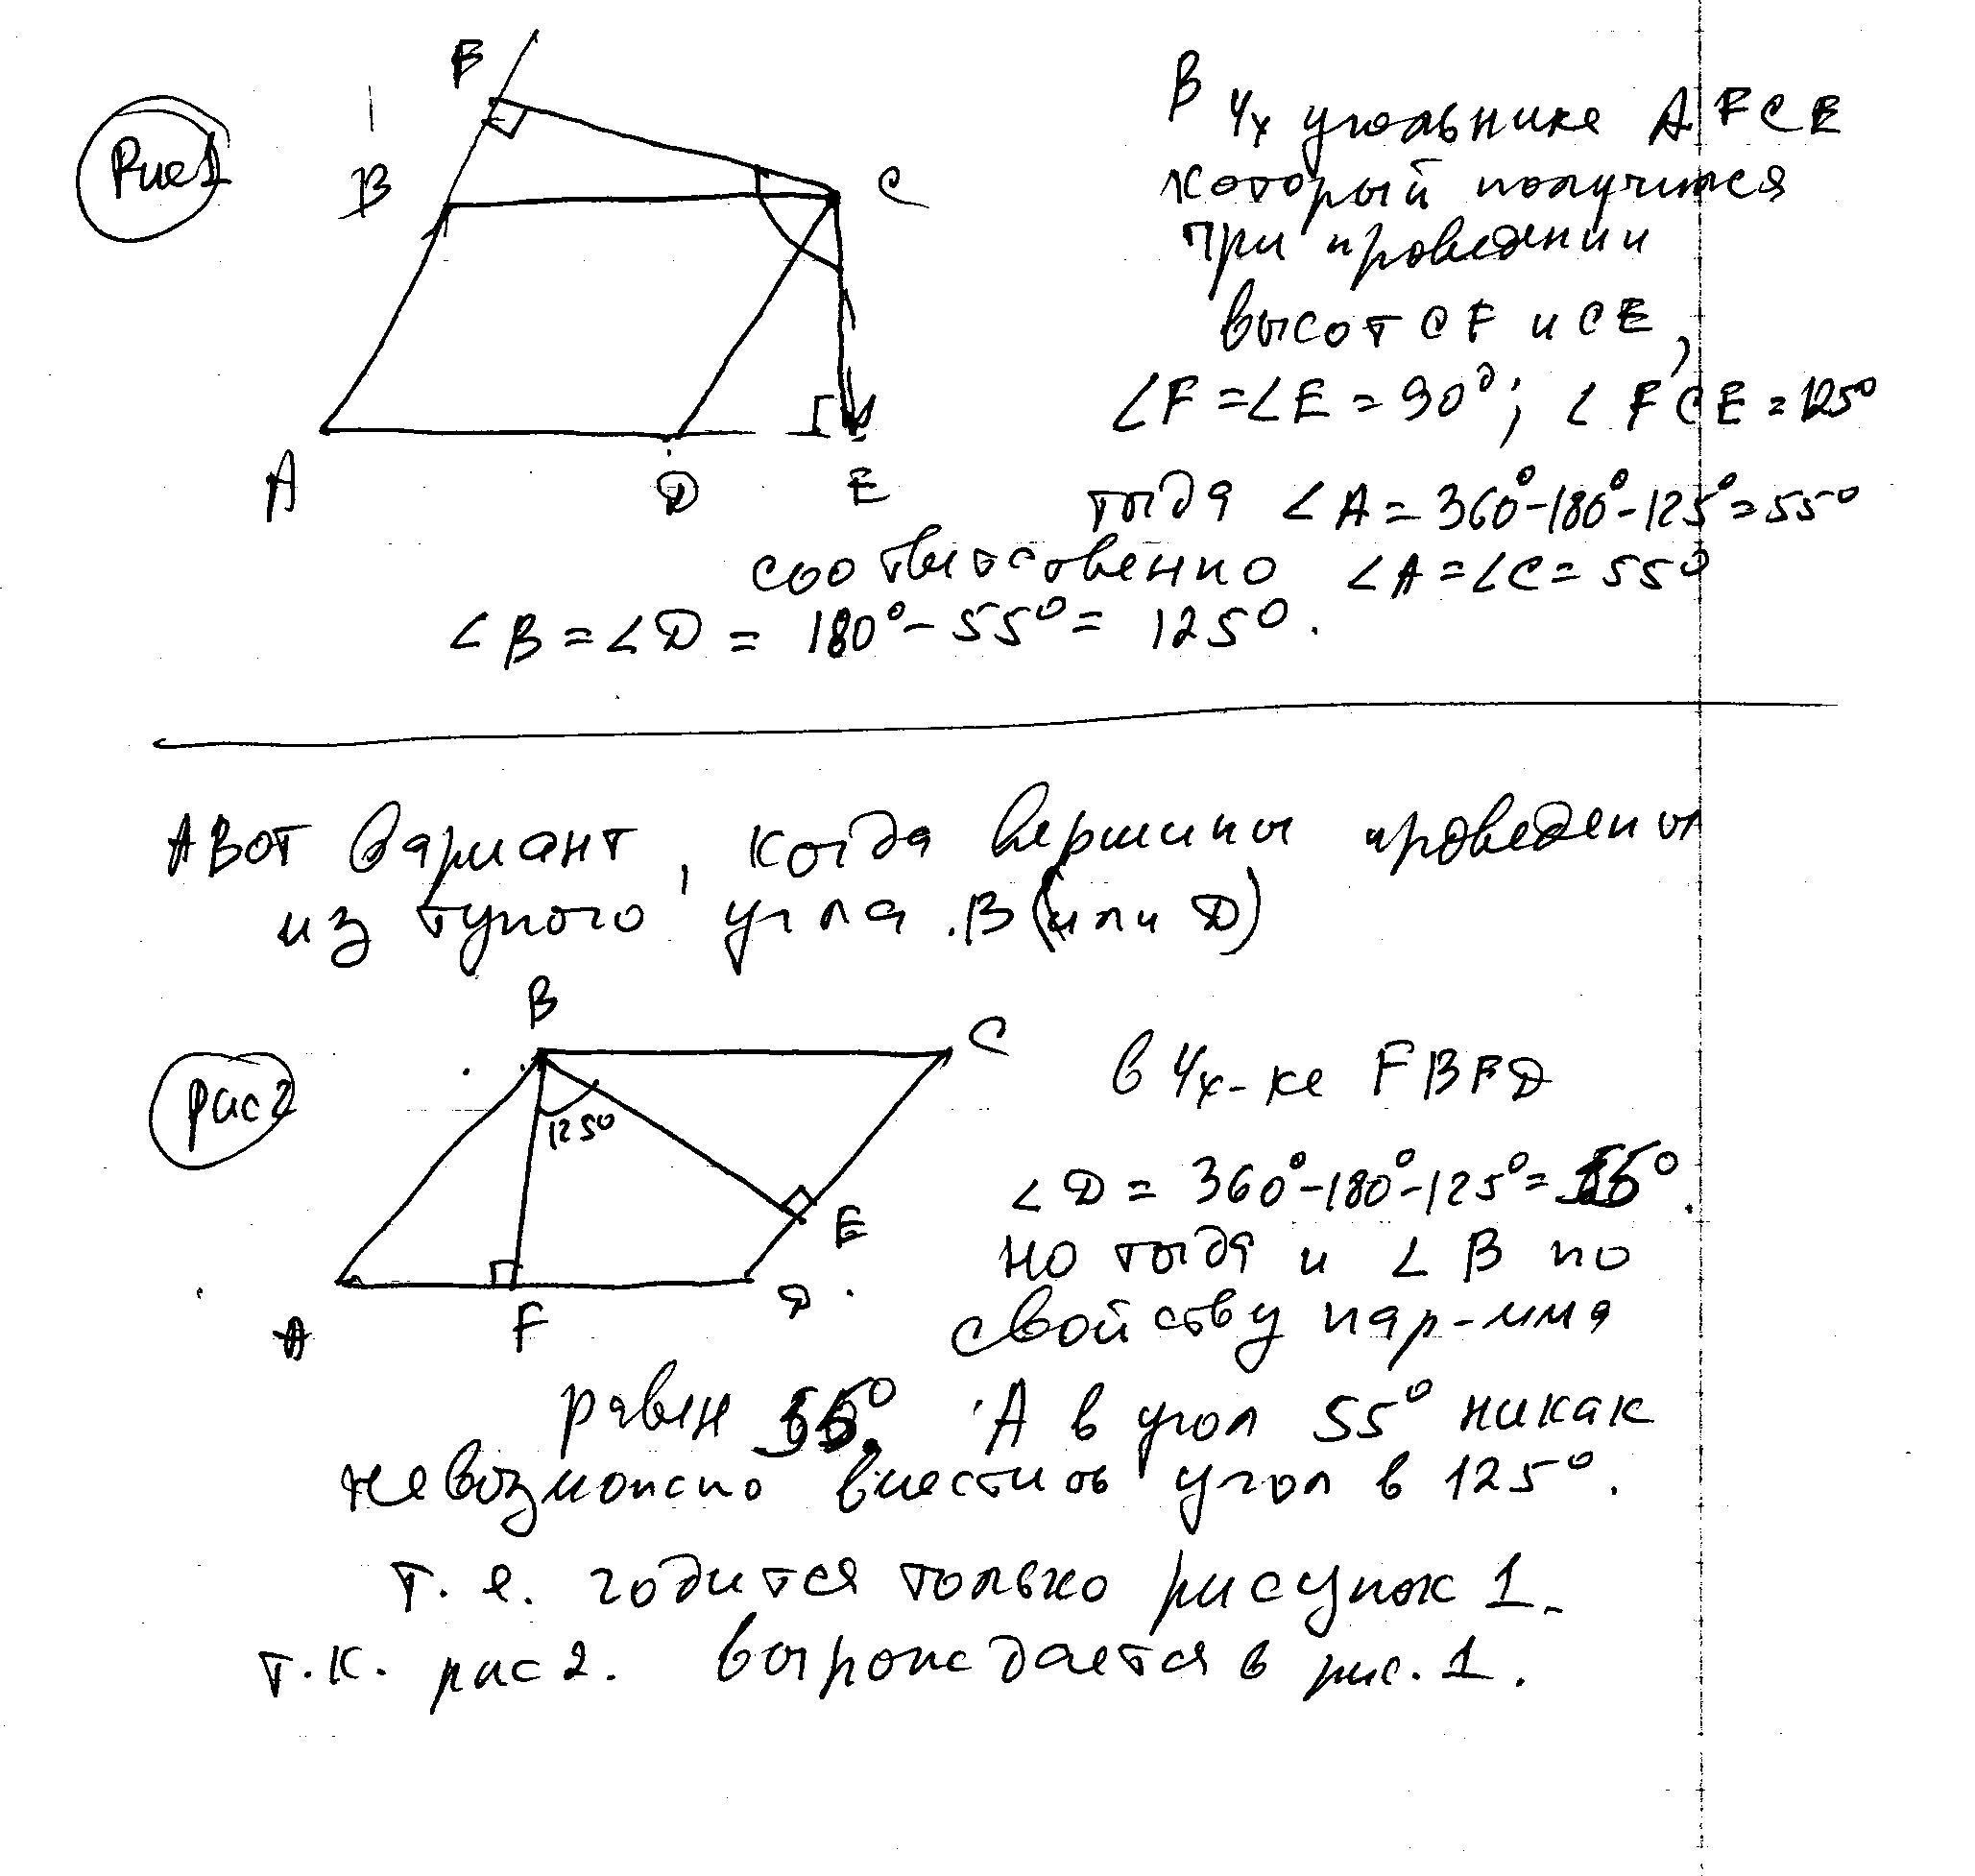 Рис1
F
B
C
A
D
E
В 4х угольнике AFCE
который получится
при проведении
высот CF и CE,
∠F = ∠E = 90°; ∠FCE = 125°
тогда ∠A = 360° - 180° - 125° = 55°
соответственно ∠A = ∠C = 55°
∠B = ∠D = 180° - 55° = 125°.
А вот вариант, когда вершины проведены
из тупого угла B (или D)
рис2
B
C
125°
E
A
F
D
в 4х-ке FBED
∠D = 360° - 180° - 125° = 55°.
но тогда и ∠B по
свойству пар-мма
равен 55°. А в угол 55° никак
невозможно вместить угол в 125°.
т.е. годится только рисунок 1.
т.к. рис 2. вырождается в рис. 1.